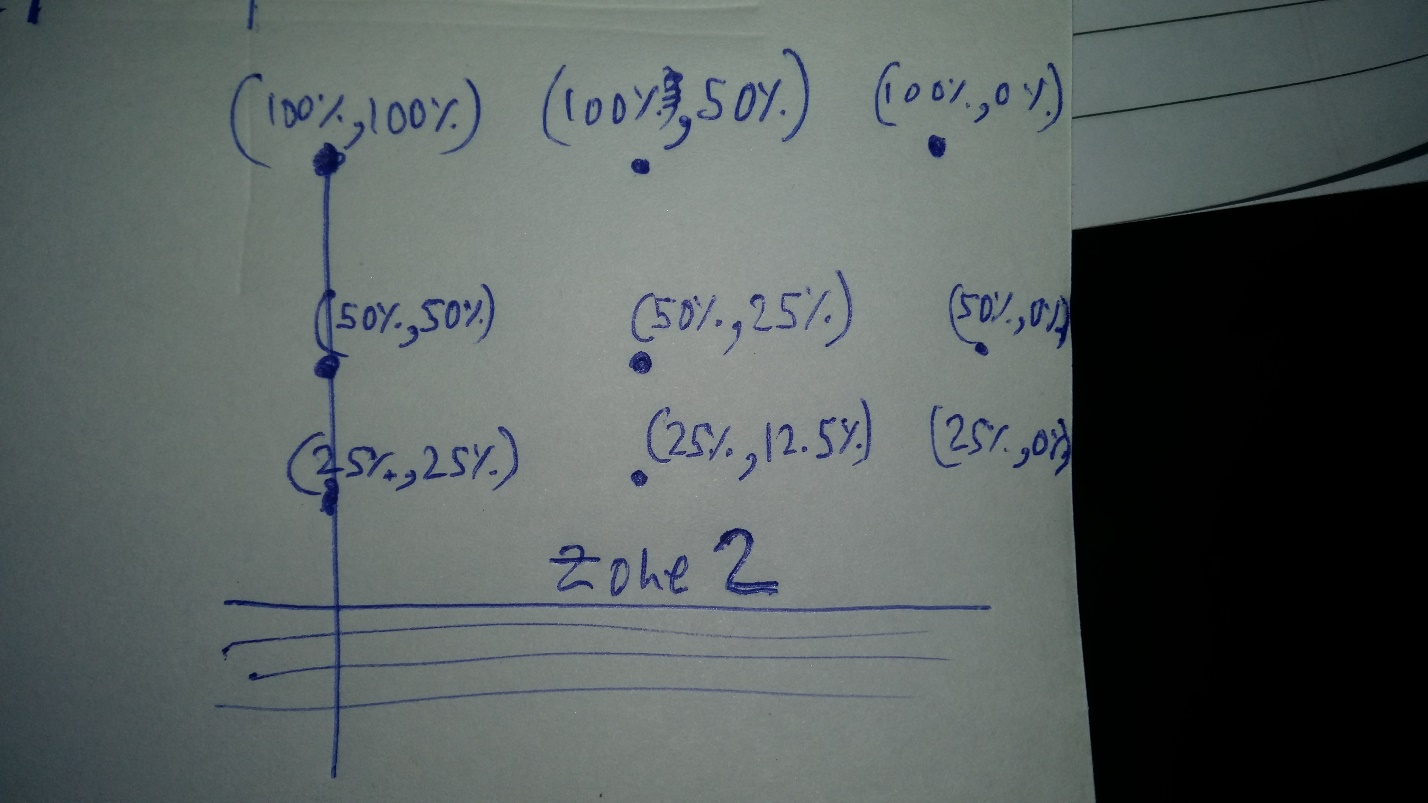 (100%,100%) (100%,50%) (100%,0%)
(50%,50%) (50%,25%) (50%,0%)
(25%,25%) (25%,12.5%) (25%,0%)
Zone 2